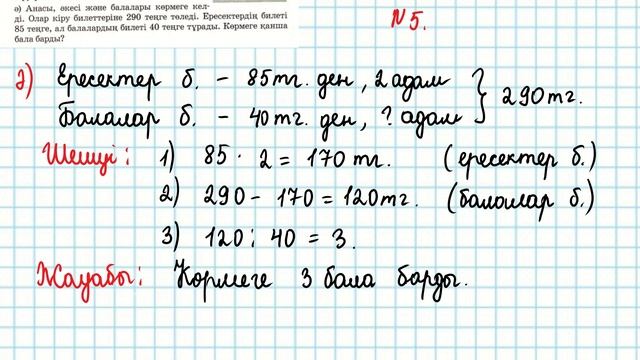 ә) Анасы, әкесі және балалары көрмеге кел-
ді. Олар кіру билеттеріне 290 теңге төледі. Ересектердің билеті
85 теңге, ал балалардың билеті 40 теңге тұрады. Көрмеге қанша
бала барды?
N5.
ә) Ересектер б. – 85тг. ден, 2 адам
Балалар б. – 40тг. ден, ? адам } 290тг.
Шешуі: 1) 85 · 2 = 170 тг. (ересектер б.)
2) 290 – 170 = 120тг. (балалар б.)
3) 120 : 40 = 3.
Жауабы: Көрмеге 3 бала барды.